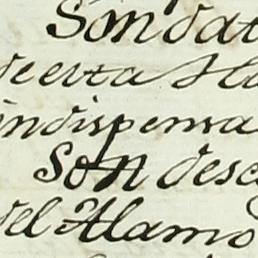 Son dat
de esta Ha
indispensa
Son desc
del Alamo